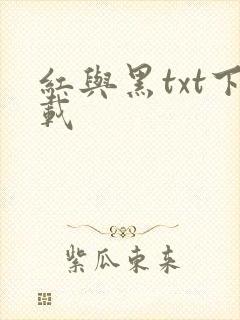 紅與黑txt下
載
紫瓜東來